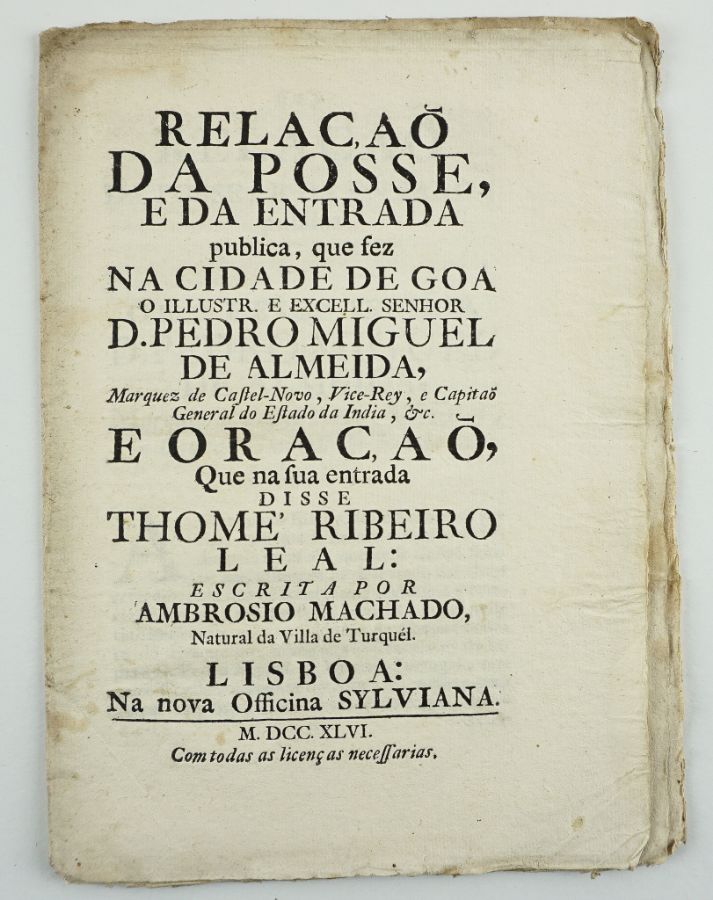 RELAC,AÕ
DA POSSE,
E DA ENTRADA
publica, que fez
NA CIDADE DE GOA
O ILLUSTR. E EXCELL. SENHOR
D. PEDRO MIGUEL
DE ALMEIDA,
Marquez de Caſtel-Novo, Vice-Rey, e Capitaõ
General do Eſtado da India, &c.
E ORAC,AÕ,
Que na ſua entrada
DISSE
THOME' RIBEIRO
LEAL:
ESCRITA POR
AMBROSIO MACHADO,
Natural da Villa de Turquél.
LISBOA:
Na nova Officina SYLVIANA.
M. DCC. XLVI.
Com todas as licenças neceſſarias.